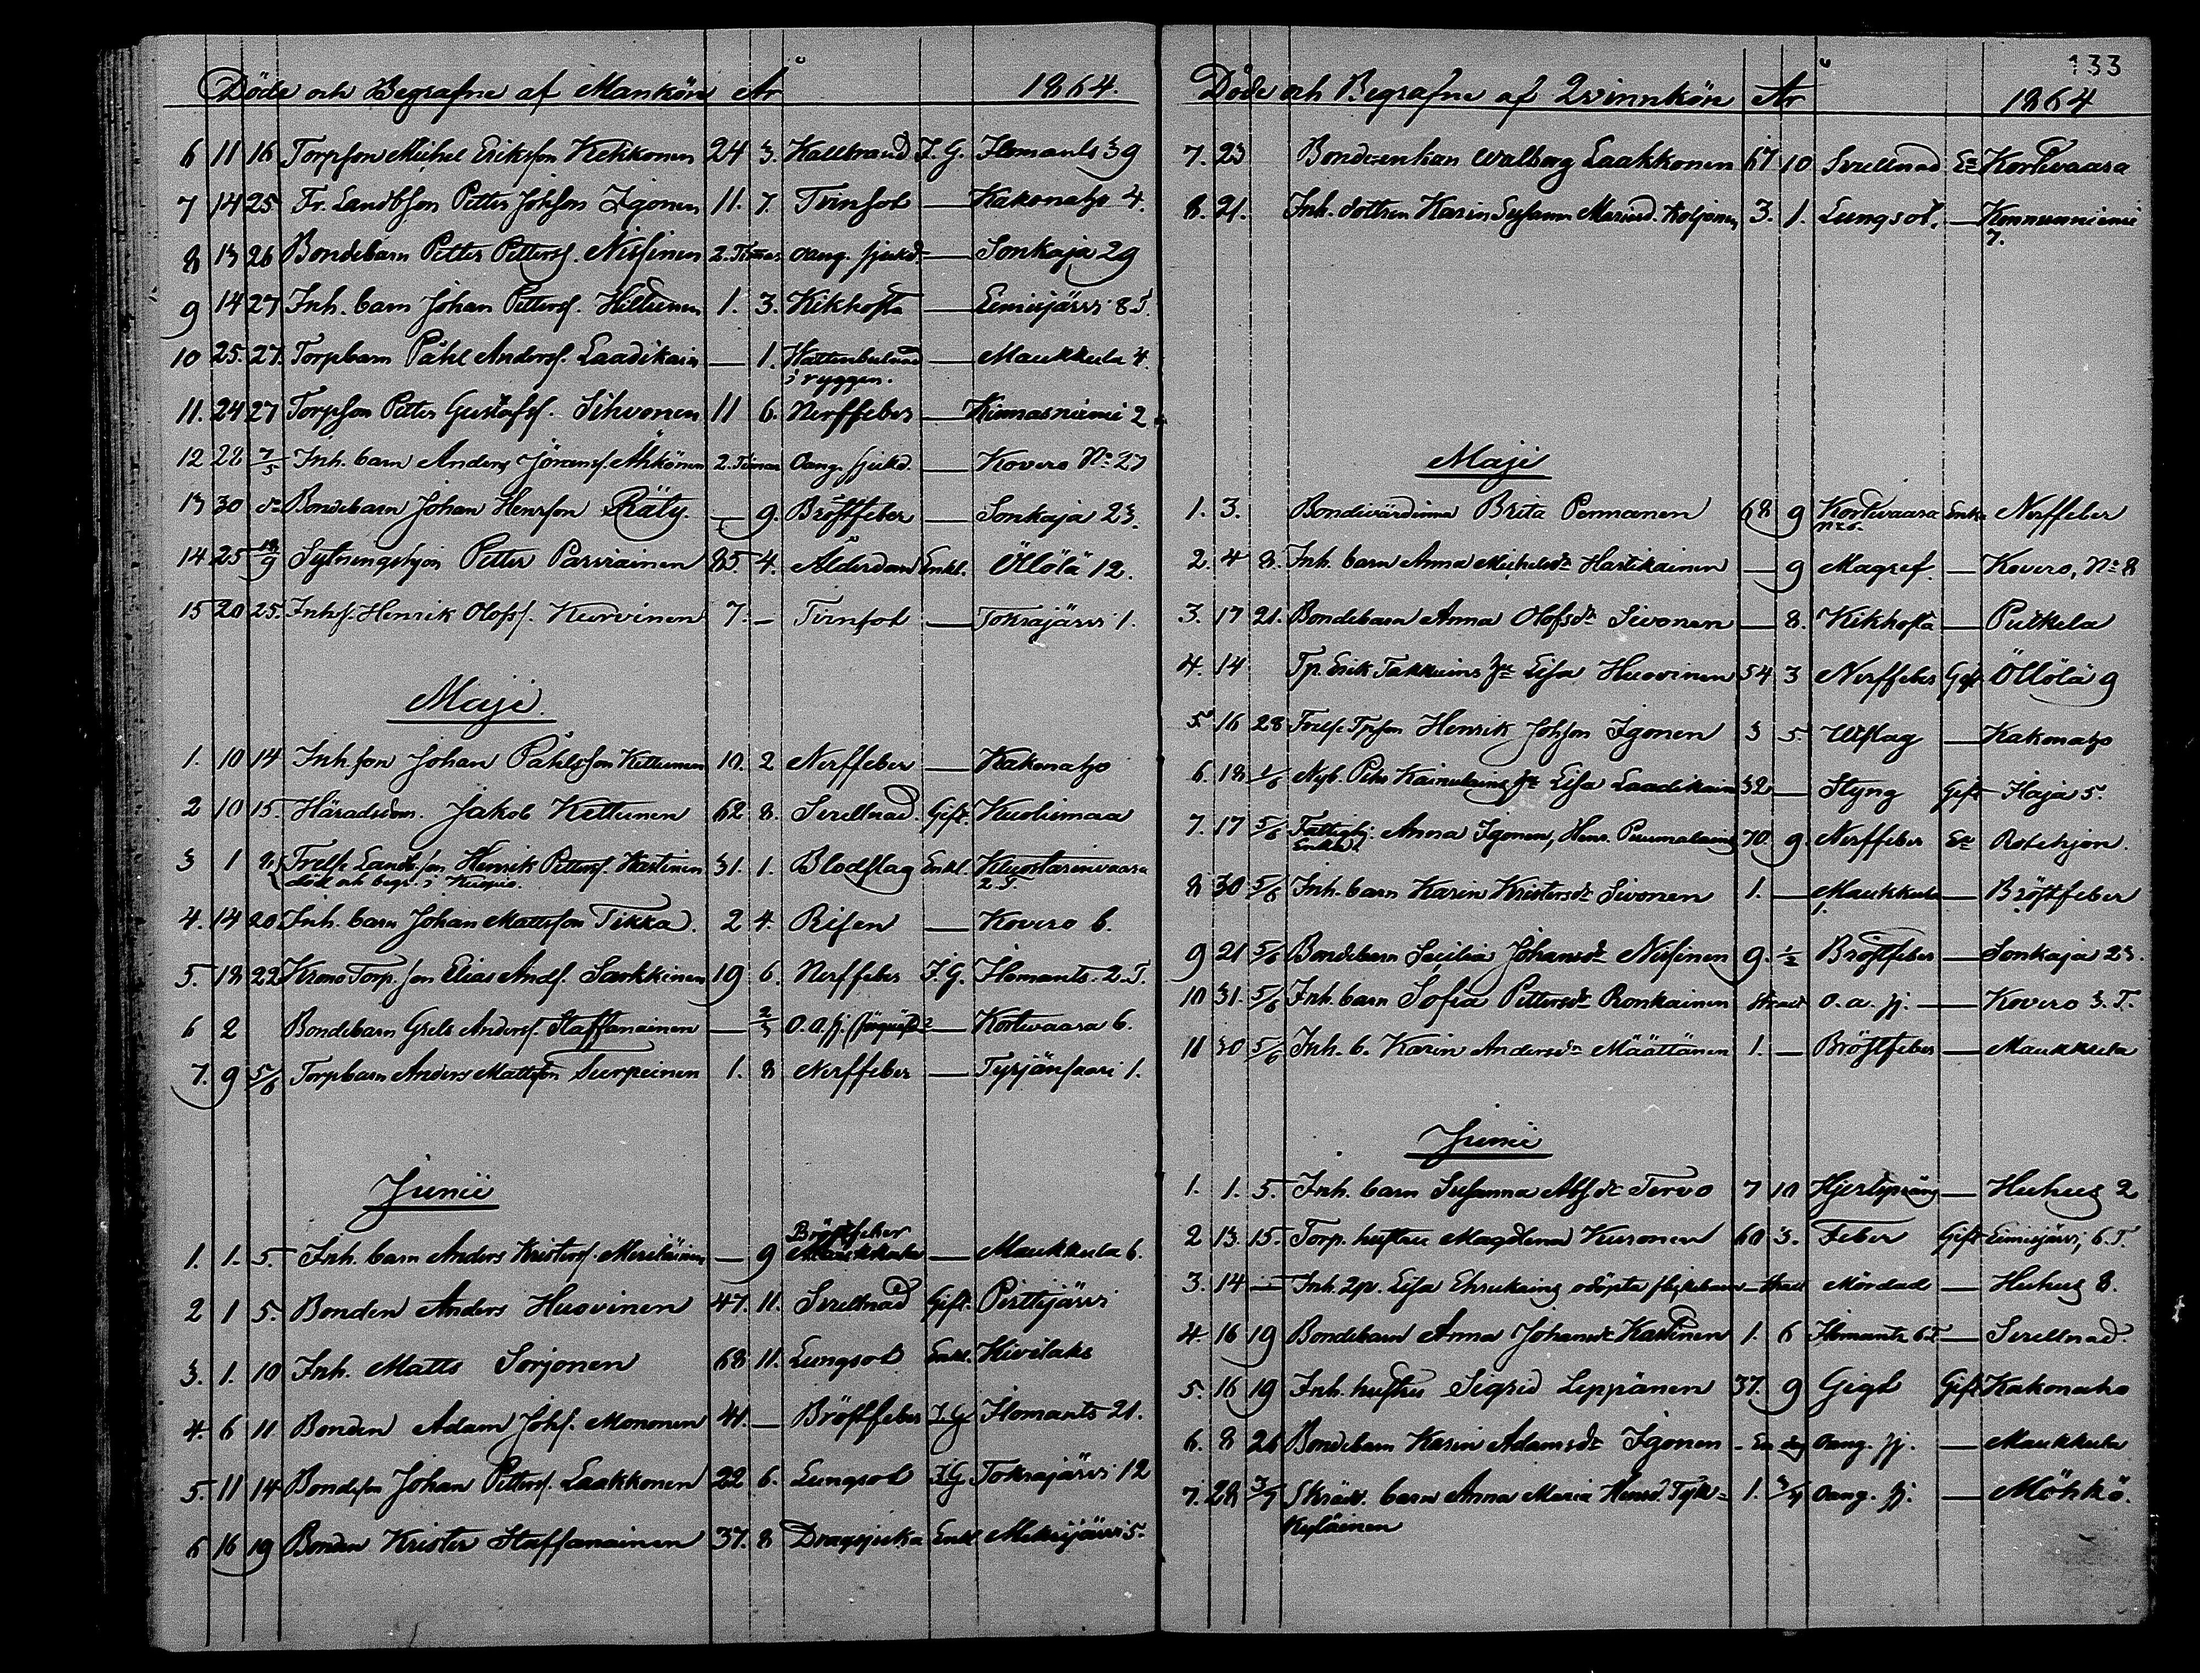 Döde och Begrafne af Mankön År 1864.
6 11 16 Torpson Michel Eriksson Kekkonen 24 3. Kallbrand I. G. Ilomants 39
7 14 25 Fr. Landbson Petter Johsson Igonen 11. 7. Tvinsot — Kakonaho 4.
8 13 26 Bondebarn Petter Petterss. Nissinen 2. Timar oang. sjukd. — Sonkaja 29
9 14 27 Inh. barn Johan Petterss. Hiltunen 1. 3. Kikhosta — Eimisjärvi 8 T.
10 25. 27. Torpbarn Påhl Anderss. Laadikain — 1. — Maukkula 4.
i ryggen.
11. 24 27 Torpson Petter Gustafss. Sihvonen 11 6. Nerffeber — Kinnasniemi 2
12 28 7/5 Inh. barn Anders Jöranss. Ahkönen 2. Timar Oang. sjukd. — Kovero No 27
13 30 do Bondebarn Johan Henrsson Räty — 9. Bröstfeber — Sonkaja 23.
14 25 18/9 Sytningshjon Petter Parviainen 85. 4. Ålderdom Enkl. Öllölä 12.
15 20 25. Inhs. Henrik Olofss. Kurvinen 7. — Tvinsot — Tokrajärvi 1.
Maji.
1. 10 14 Inh. son Johan Påhlsson Kettunen 10. 2 Nerffeber — Kakonaho
2 10 15. Häradsdom. Jakob Kettunen 62 8. Svullnad Gift. Kuolismaa
3 1 8. Frelse Landb. son Henrik Petterss. Kastinen 31. 1. Blodslag Enkl. Kuortarinvaara
död och begr. i Kuopio. 2 T.
4. 14 20 Inh. barn Johan Mattsson Tikka. 2 4. Risen — Kovero 6.
5. 18 22 Krono Torp. son Elias Ands. Sarkkinen 19 6. Nerffeber I. G. Ilomants. 2. T.
6 2 Bondebarn Grels Anderss. Staffanainen — 2/3 o. a. sj. — Kortevaara 6.
7. 9 5/6 Torpbarn Anders Mattsson Turpeinen 1. 8 Nerffeber — Tyrjänsaari 1.
Junii
Bröstfeber
1. 1. 5. Inh. barn Anders Kristerss. Meriläinen — 9 Maukkula — Maukkula 6.
2 1 5. Bonden Anders Huovinen 47. 11. Svullnad Gift. Pirttijärvi
3. 1. 10 Inh. Matts Sorjonen 68 11. Lungsot Enkl. Kivilaks
4. 6 11 Bonden Adam Johs. Mononen 41. — Bröstfeber I. G. Ilomants 21.
5. 11 14 Bondeson Johan Petterss. Laakkonen 22 6. Lungsot I. G. Tokrajärvi 12
6 16 19 Bonden Krister Staffanainen 37. 8 Dragsjuka Enkl Mekrijärvi 5.
133
Döde och Begrafne af Qvinnkön År 1864
7. 23 Bondeenkan Walborg Laakkonen 67 10 Svullnad Ea Kortevaara
8. 21. Inh. dottren Karin Susanna 3. 1. Lungsot. — Konnunniemi
7.
Maji
1. 3. Bondevärdinna Brita Pennanen 68 9 Kortevaara Enka Nerffeber
No 6.
2. 4 8. Inh. barn Anna Michelsdr Hartikainen — 9 Magref. — Kovero, No 8
3. 17 21. Bondebarn Anna Olofsdr Sivonen — 8. Kikhosta — Putkela
4. 14 Tp. Erik Takkuins hu Lisa Huovinen 54 3 Nerffeber Gift Öllölä 9
5. 16 28 Frelse Tpson Henrik Johsson Igonen 3 5. Utslag — Kakonaho
6. 18 1/6 Nyb. Pehr Kainulains hu Lisa Laadikain 32 — Styng Gift Ilaja 5.
7. 17 5/6 Fattighj. Anna Igonen, Henr. Puumalains 70 9. Nerffeber Ea Rotehjon.
Enka
8 30 5/6 Inh. barn Karin Kristersdr Sivonen 1. — Maukkula — Bröstfeber
1.
9 21 5/6 Bondebarn Secilia Johansdr Nissinen 9. 1/2 Bröstfeber — Sonkaja 23.
10 31. 5/6 Inh. barn Sofia Pettersdr Ronkainen strax o. a. sj. — Kovero 3. T.
11 30 5/6 Inh. b. Karin Andersdr Määttänen 1. — Bröstfeber — Maukkula
Junii
1. 1. 5. Inh. barn Susanna Tervo 7 10 — Huhus 2
2 13. 15. Torp. hustru Magdlena Kuronen 60 3. Feber Gift Eimisjärvi, 6. T.
3. 14 — Inh. Qp. Lisa odöpta flickebarn — strax Mördad — Huhus 8.
4. 16 19 Bondebarn Anna Johansdr Kastinen 1. 6 Ilomants 6 T. — Svullnad.
5. 16 19 Inh. hustru Sigrid Leppänen 37. 9 Gigt Gift Kakonaho
6. 8 26 Bondebarn Karin Adamsdr Igonen — En dag Oang. sj. — Maukkula
7. 28 3/7 Skrädd. barn Anna Maria Hensd. Tyk= 1. 3/4 Oang. sj. — Möhkö.
kyläinen